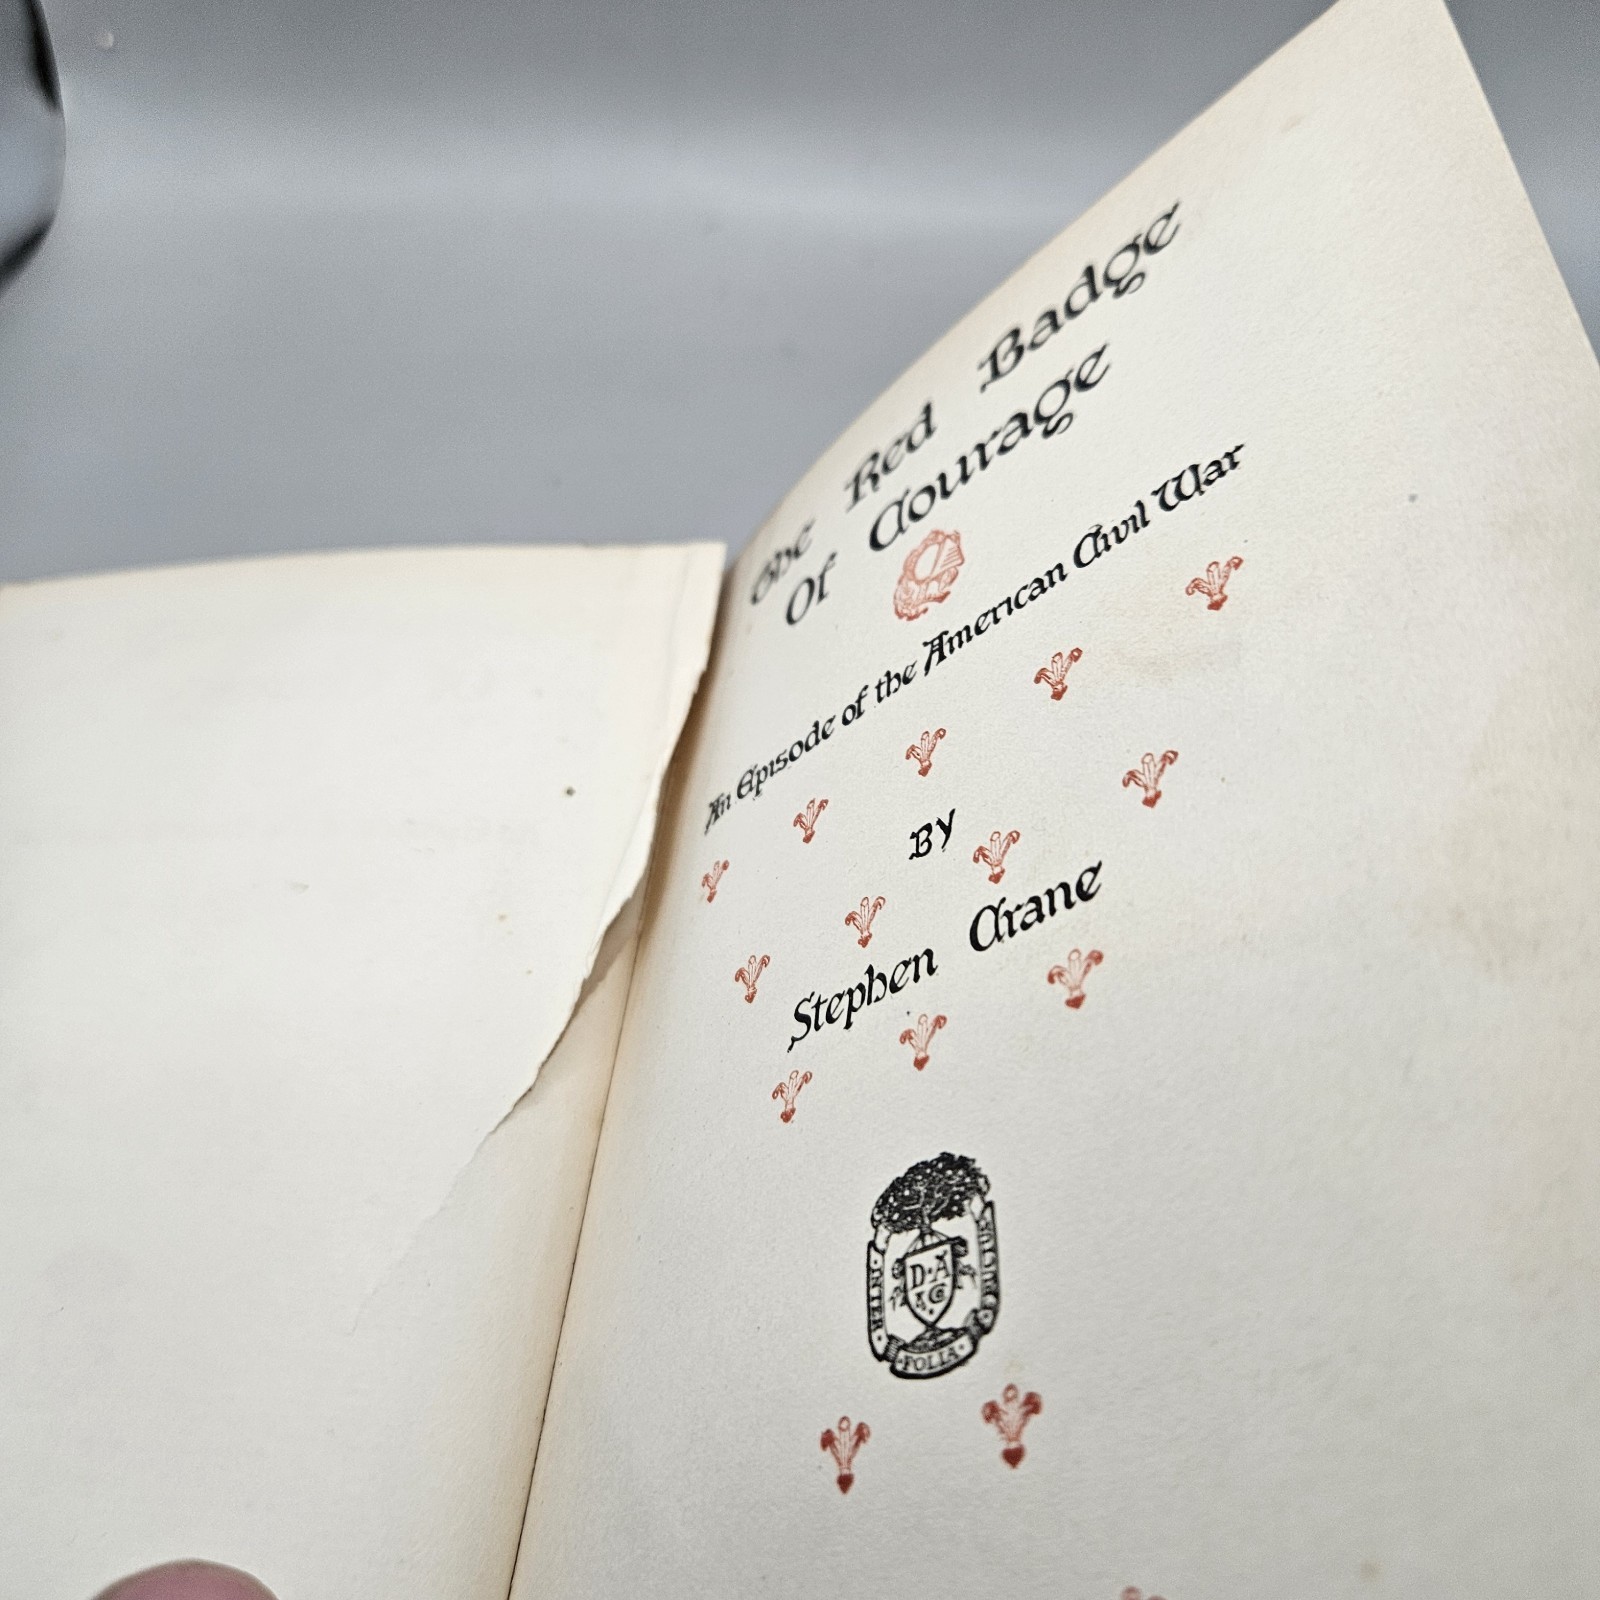 The Red Badge
Of Courage
An Episode of the American Civil War
By
Stephen Crane
D·A
&Co
·INTER·
·FOLIA·
FRUCTUS